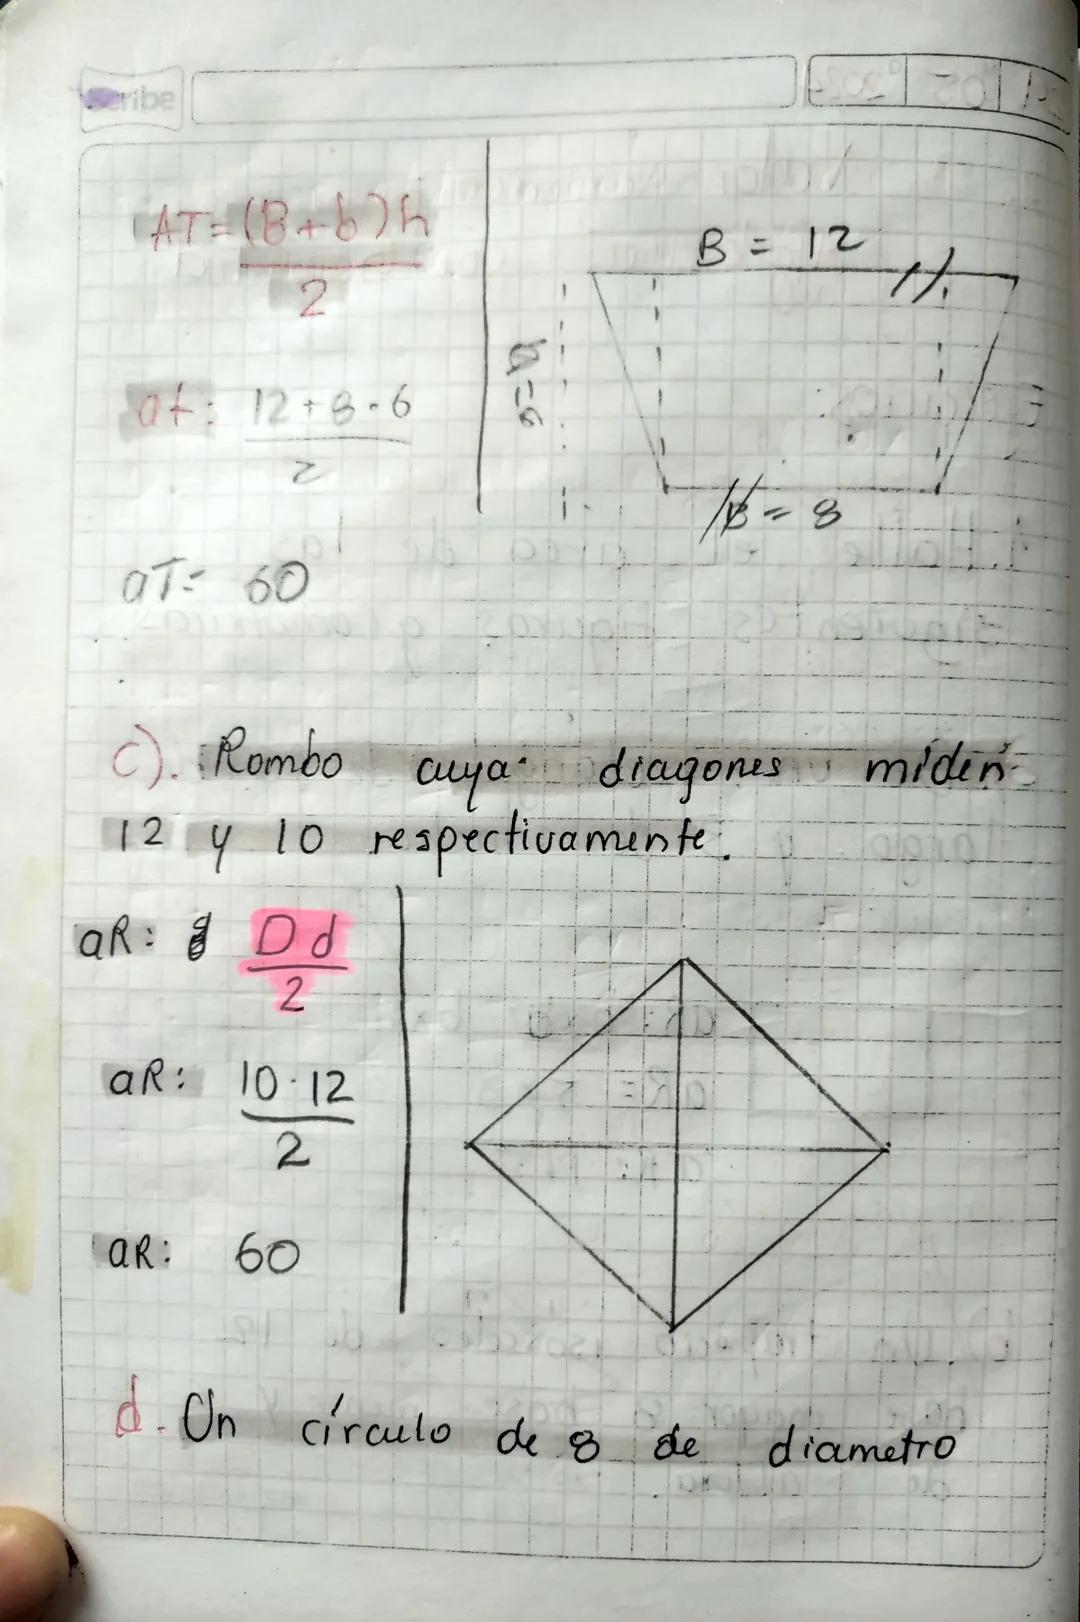 AT = (B + b) h
2
B = 12
at: 12 + 8 · 6
2
h = 6
B = 8
aT = 60
c). Rombo cuya diagones miden
12 y 10 respectivamente.
aR: D d
2
aR: 10 · 12
2
aR: 60
d. Un círculo de 8 de diametro